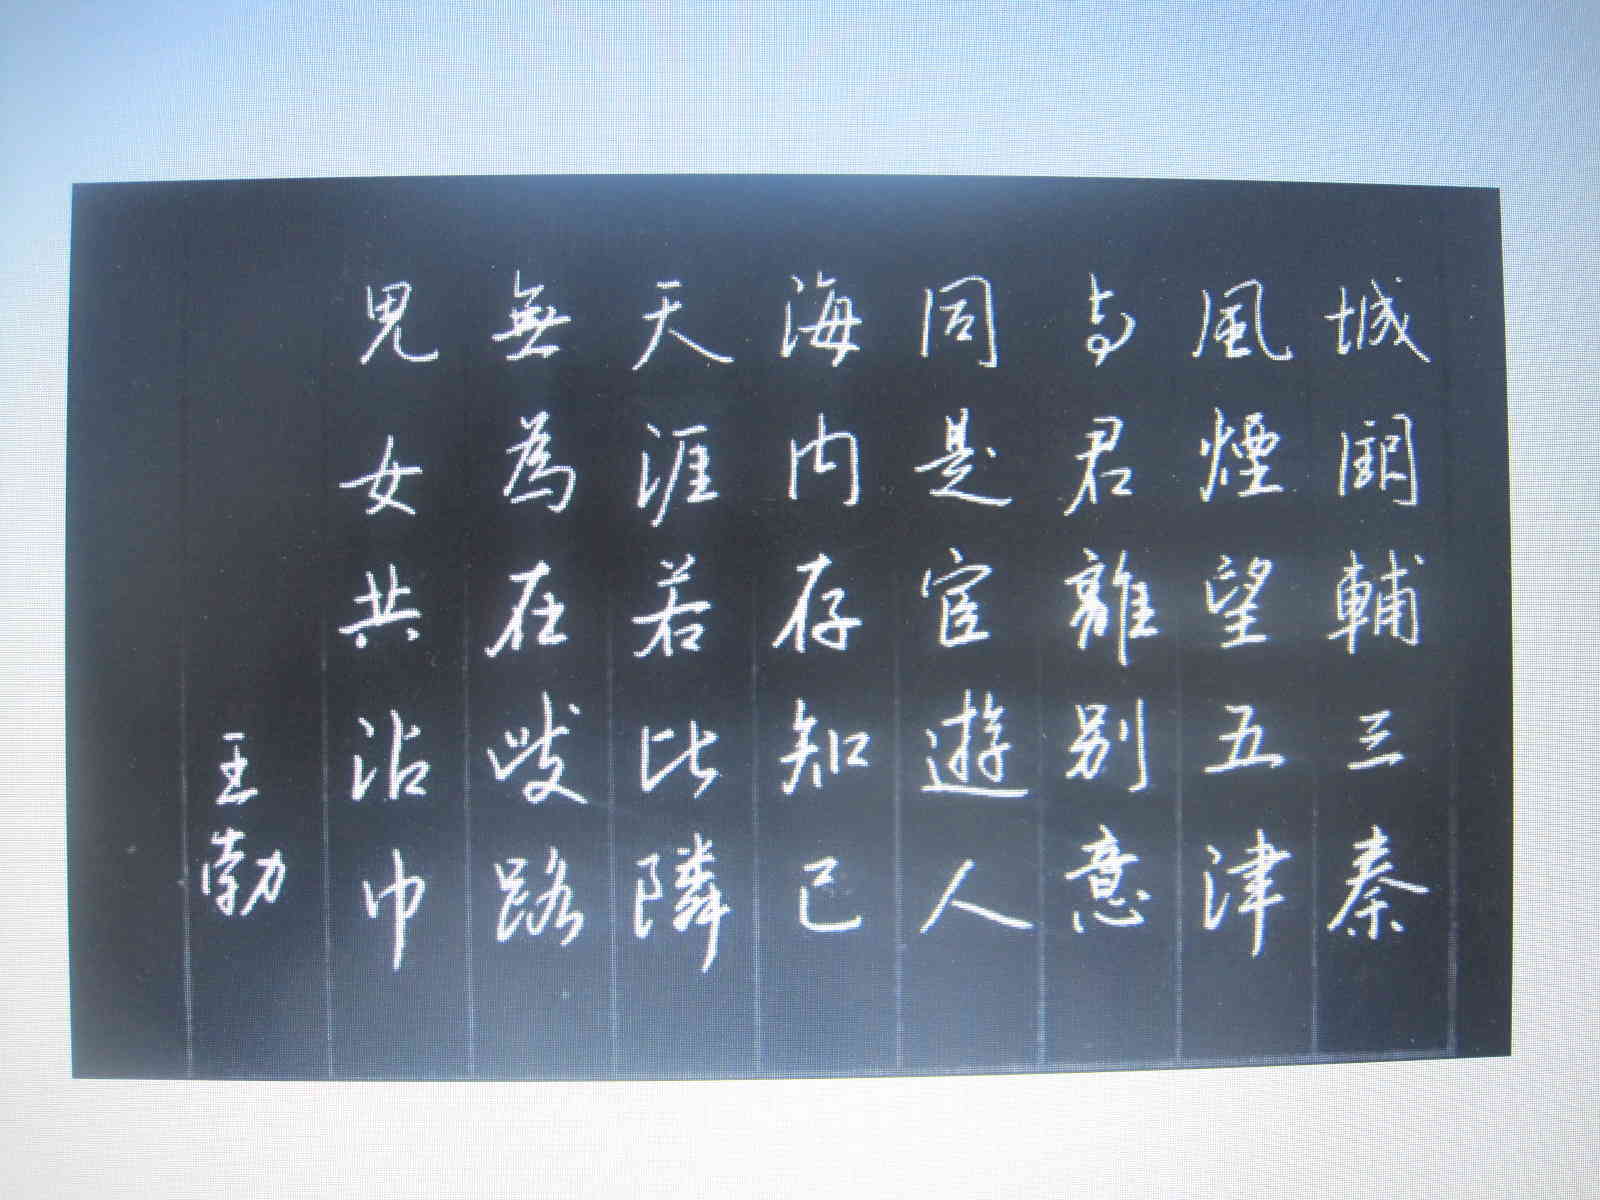 城闕輔三秦
風煙望五津
与君離別意
同是宦遊人
海内存知己
天涯若比隣
無為在歧路
児女共沾巾
王勃